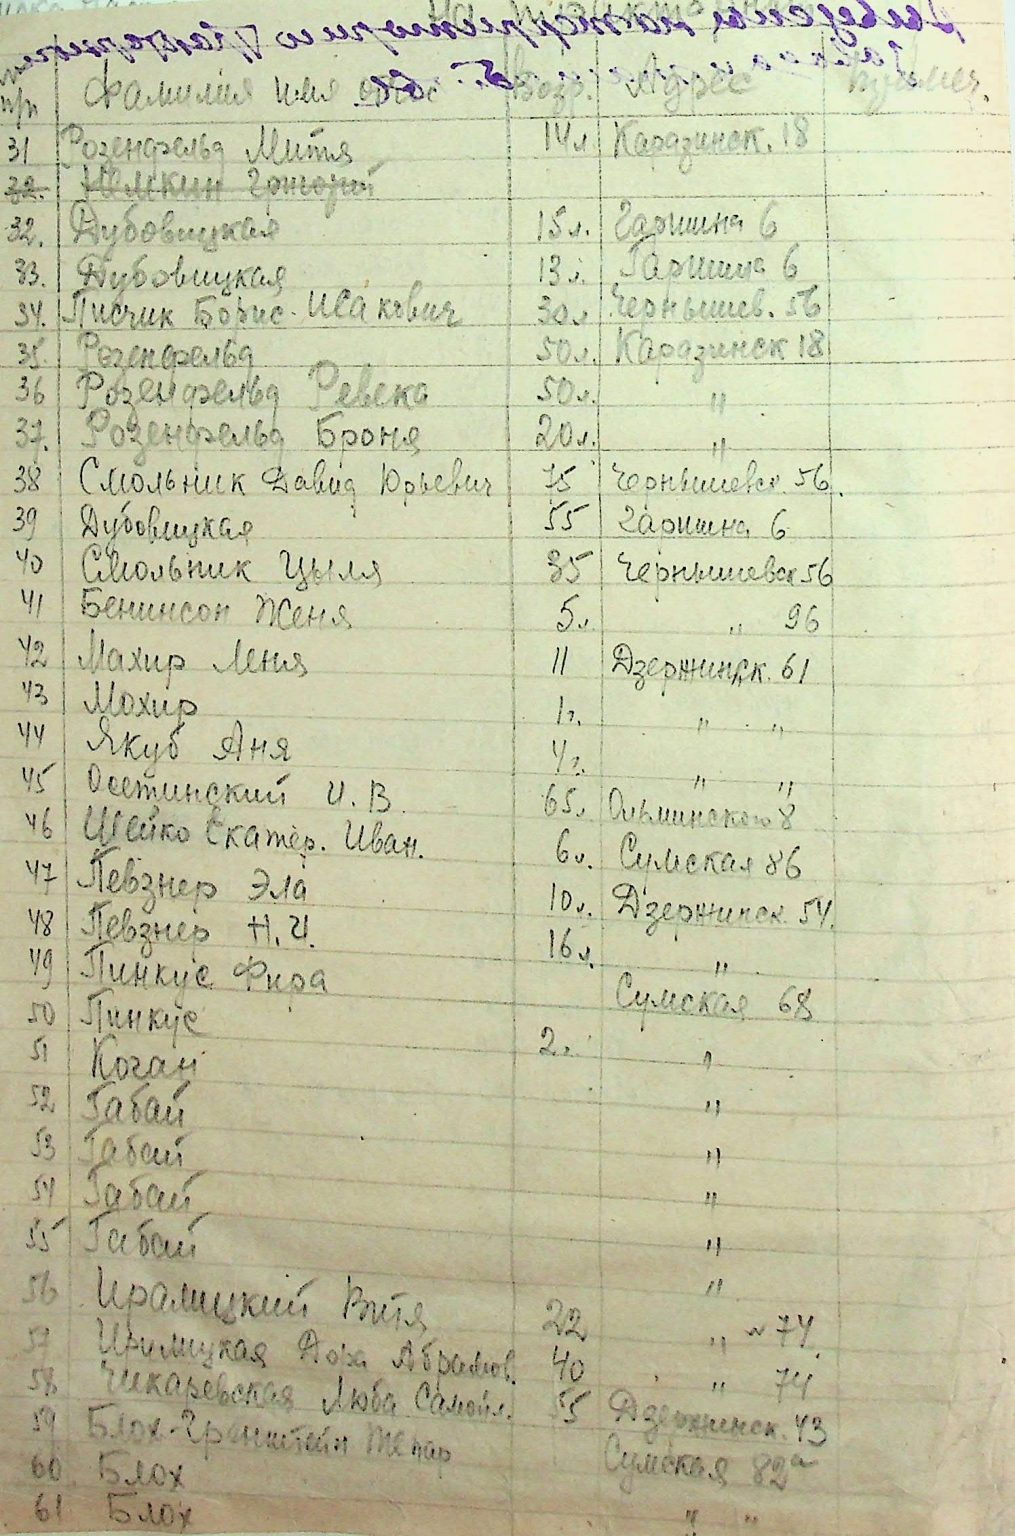 № п/п Фамилия имя отчес Возр. Адрес примеч.
31 Розенфельд Митя 14 л Кардзинск. 18
32. Немкин Григорий
32. Дубовицкая 15 л. Гаршина 6
33. Дубовицкая 13 л. Гаршина 6
34. Писчик Борис Исакович 30 л Чернышев. 56
35 Розенфельд 50 л. Кардзинск 18
36 Розенфельд Ревека 50 л. "
37. Розенфельд Броня 20 л. "
38 Смольник Давид Юрьевич 75 Чернышевск. 56.
39 Дубовицкая 55 Гаршина 6
40 Смольник Цыля 35 Чернышевск 56
41 Бенинсон Женя 5 л. " 96
42 Махир Леня 11 Дзержинск. 61
43 Мохир 1 г. " "
44 Якуб Аня 4 г. " "
45 Осетинский И. В. 65 л. Ольминского 8
46 Шейко Екатер. Иван. 6 л. Сумская 86
47 Певзнер Эла 10 л. Дзержинск. 54.
48 Певзнер Н. И. 16 л. "
49 Пинкус Фира Сумская 68
50 Пинкус 2 г. "
51 Коган "
52 Габай "
53 Габай "
54 Габай "
55 Габай "
56 Иралицкий Витя 22 " 74
57 Ирмицкая Дора Абрамов. 40 " 74
58 Чикаревская Люба Самойл. 55 Дзержинск. 43
59 Блох-Гринштейн Сумская 82а
60 Блох " "
61 Блох